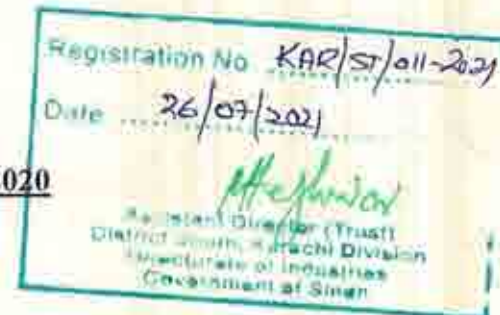 Registration No. KAR/ST/011-2021
Date 26/07/2021
020
Assistant Director (Trust)
District South, Karachi Division
Directorate of Industries
Government of Sindh